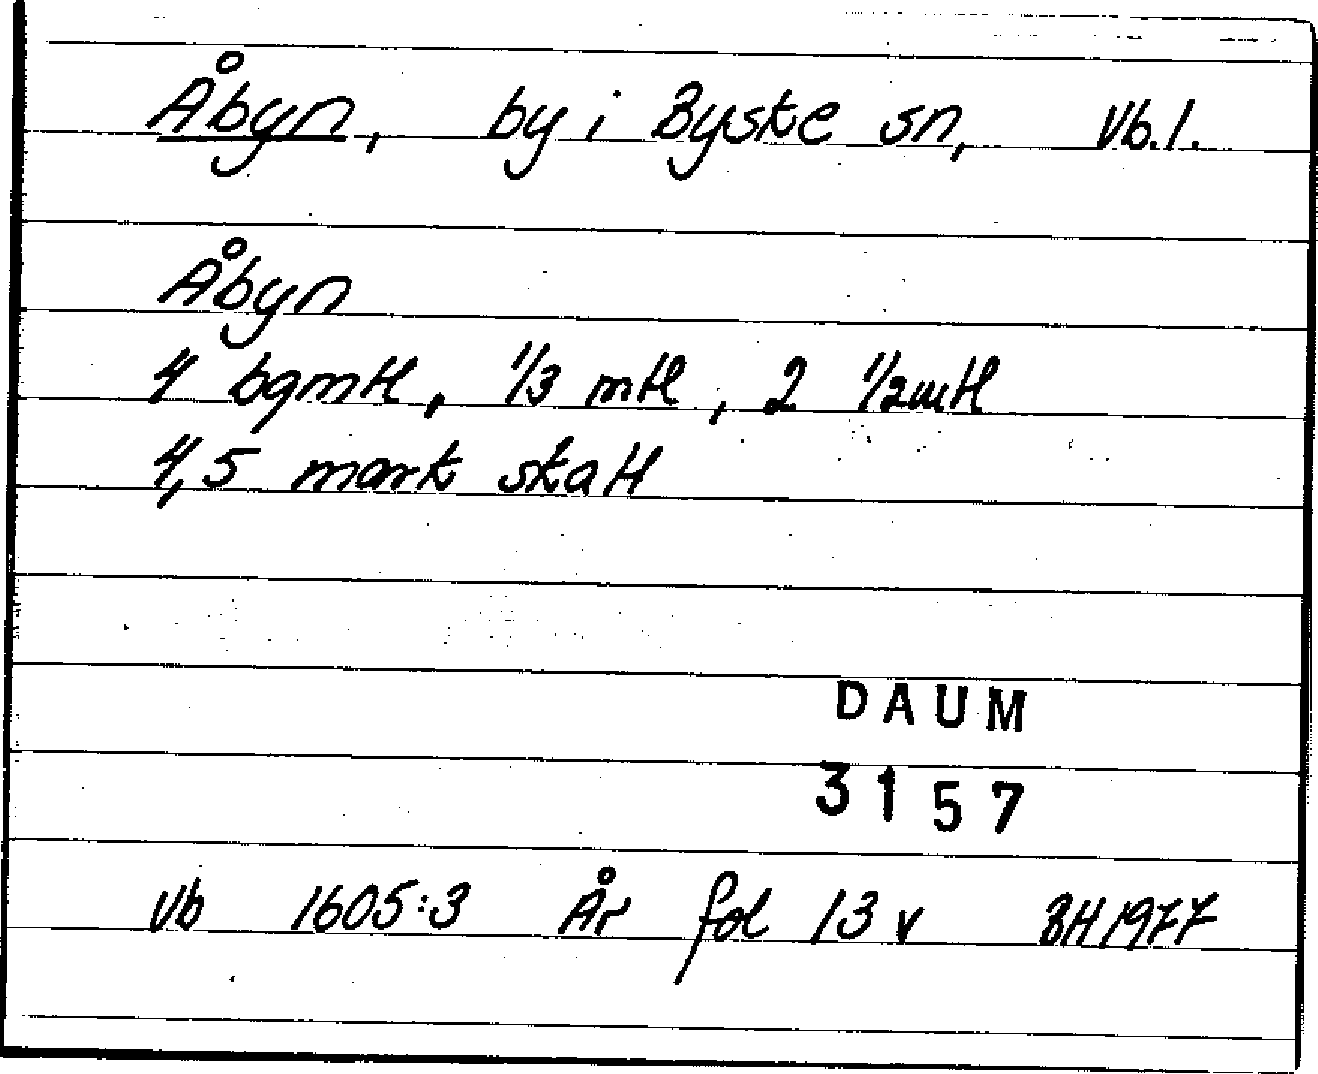 Åbyn, by i Byske sn, Vb.l.
Åbyn
4 bgmtl, 1/3 mtl, 2 1/2mtl
4,5 mark skatt
DAUM
3157
Vb 1605:3 År fol 13 v BH 1977